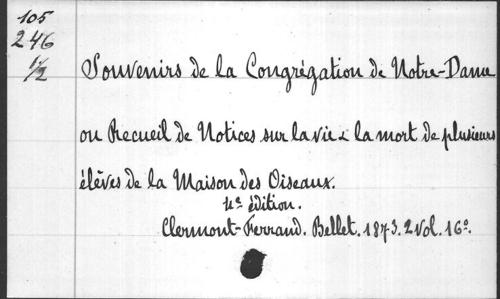 105
246
1/2
Souvenirs de la Congrégation de Notre-Dame
ou Recueil de Notices sur la vie & la mort de plusieurs
élèves de la Maison des Oiseaux.
4e édition.
Clermont-Ferrand. Bellet. 1873. 2 vol. 16o.